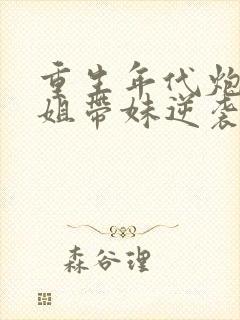 重生年代炮
姐带妹逆袭
森谷理